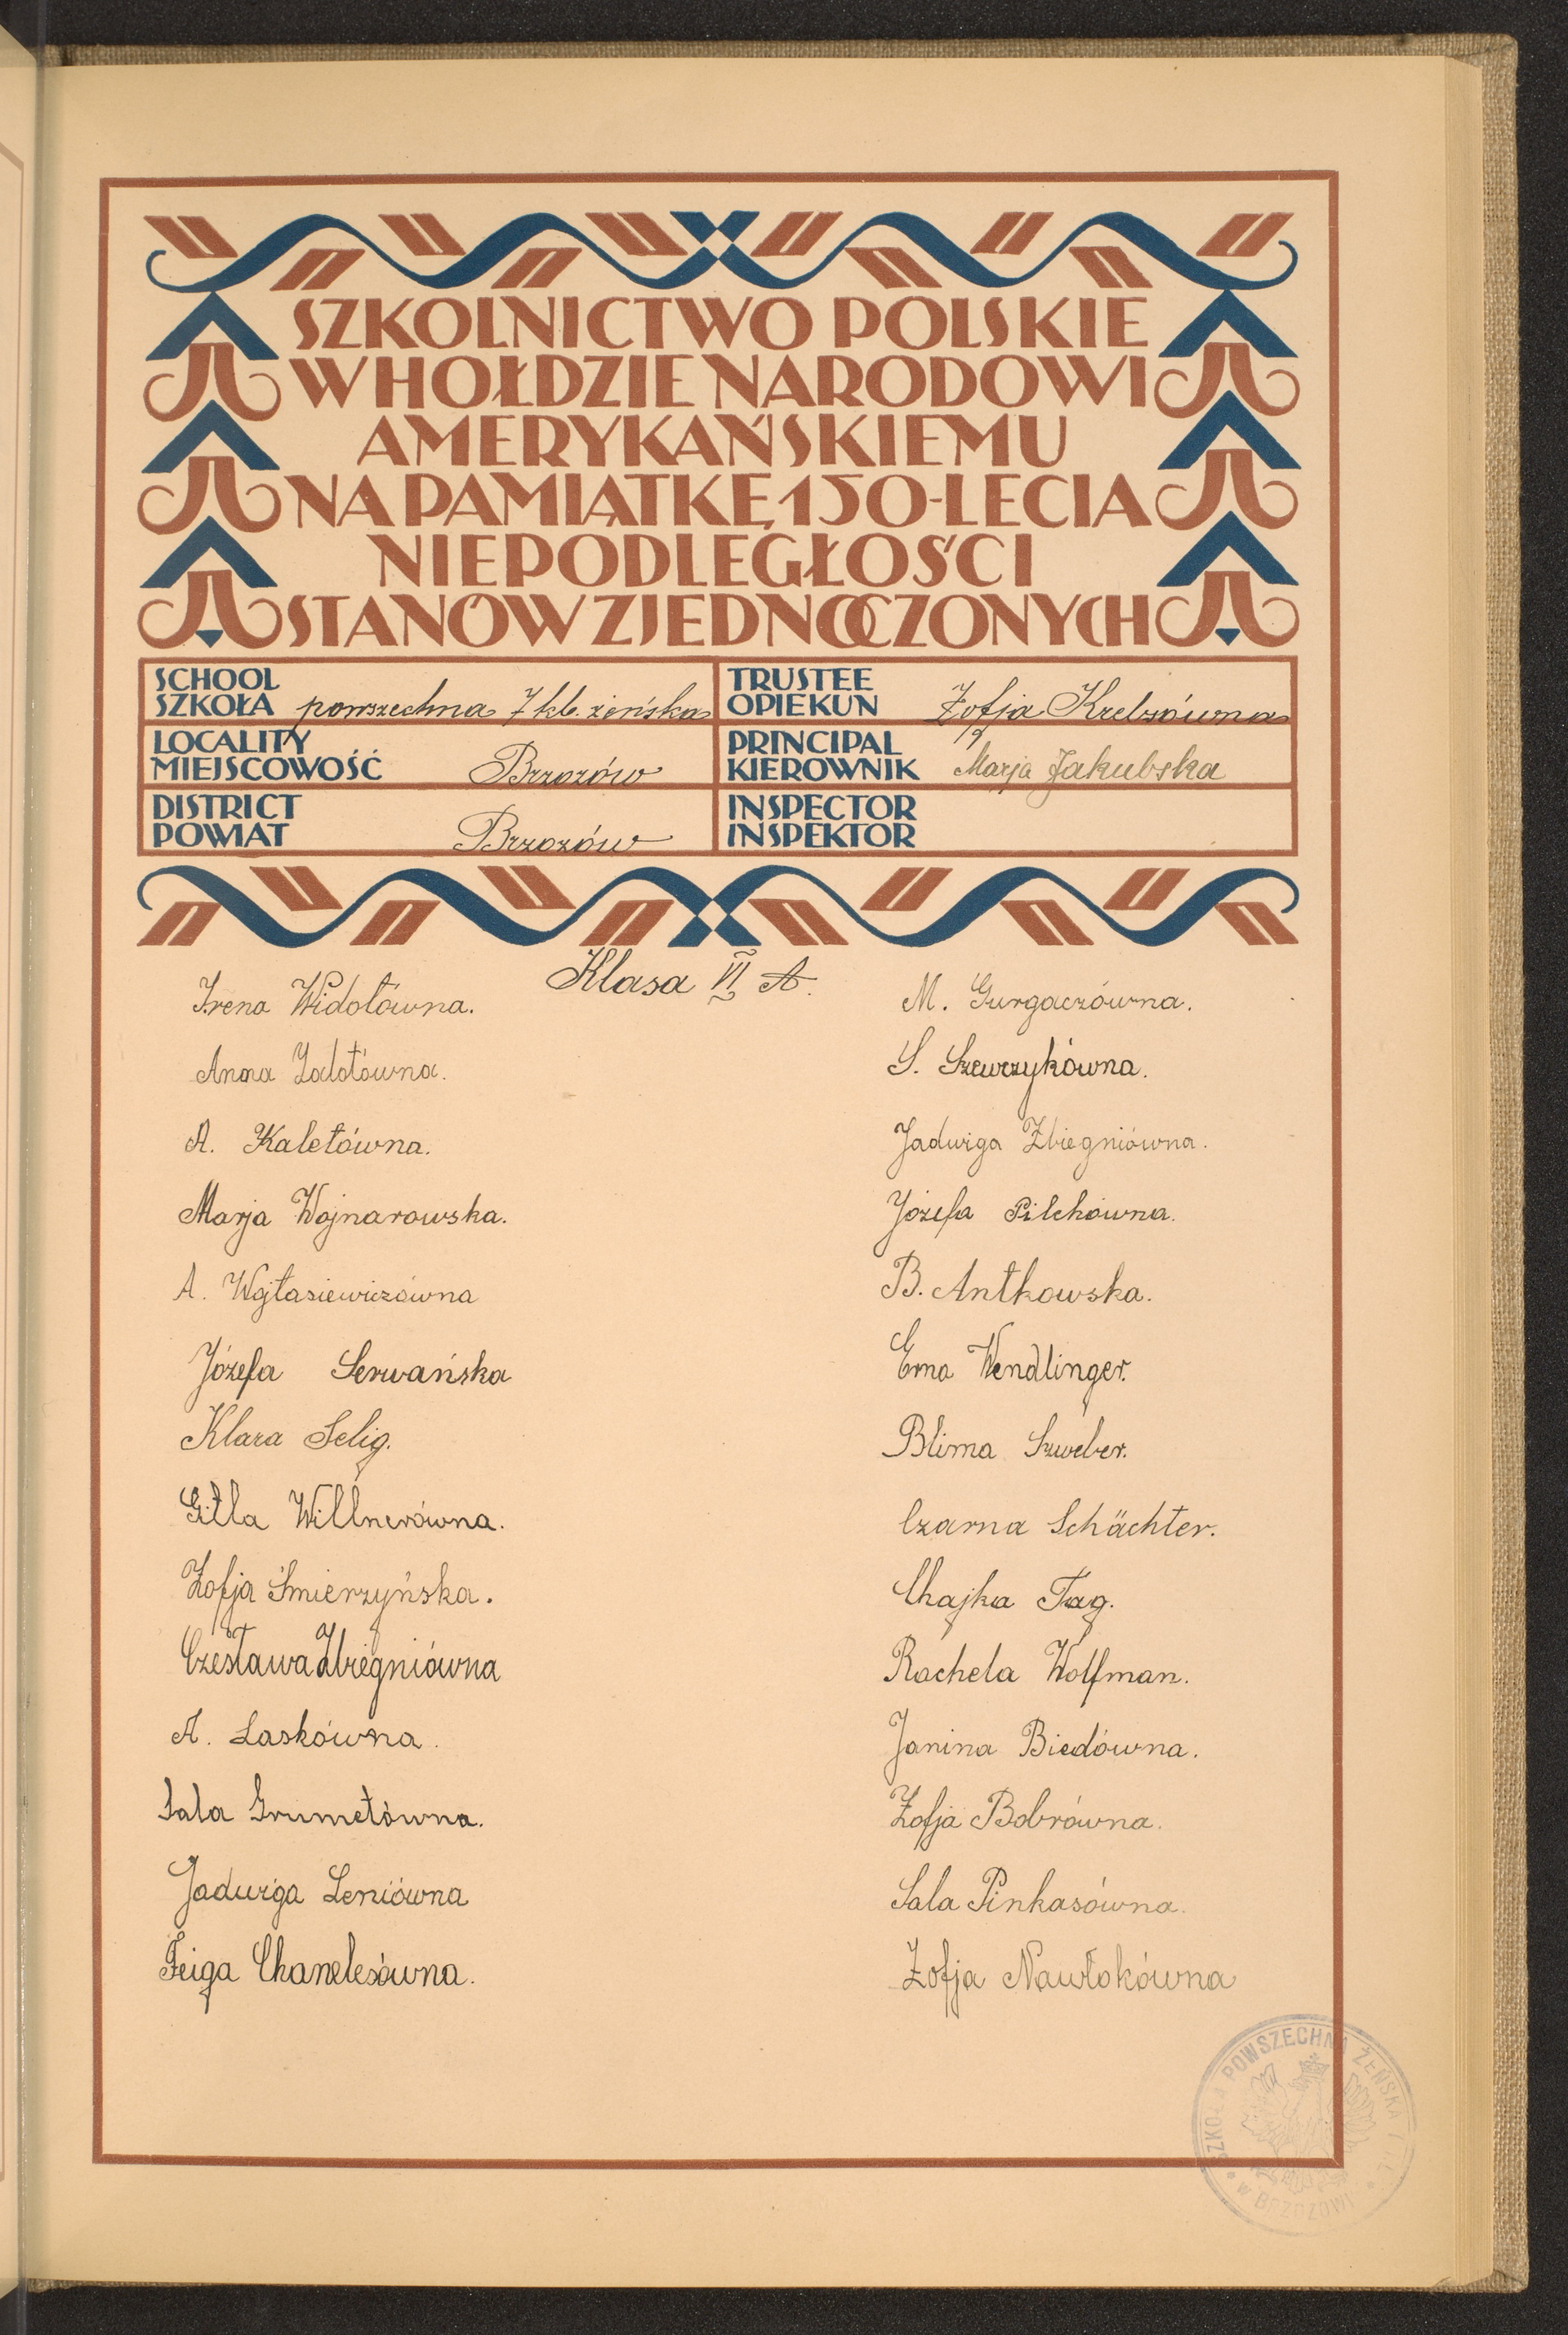 SZKOLNICTWO POLSKIE
W HOŁDZIE NARODOWI
AMERYKAŃSKIEMU
NA PAMIĄTKĘ 150-LECIA
NIEPODLEGŁOŚCI
STANÓW ZJEDNOCZONYCH
SCHOOL
SZKOŁA powszechna 7 kl. żeńska
TRUSTEE
OPIEKUN Zofja Krelzówna
LOCALITY
MIEJSCOWOŚĆ Brzozów
PRINCIPAL
KIEROWNIK Marja Jakubska
DISTRICT
POWIAT Brzozów
INSPECTOR
INSPEKTOR
Klasa VI A.
Irena Widotówna.
Anna Zalotówna.
A. Kaletówna.
Marja Wojnarowska.
A. Wojtasiewiczówna
Józefa Serwańska
Klara Selig.
Gitla Willnerówna.
Zofja Śmierzyńska.
Czesława Zbiegniówna
A. Laskówna.
Sala Grumetówna.
Jadwiga Leniówna
Feiga Chanelesówna.
M. Gurgaczówna.
S. Szewczykówna.
Jadwiga Zbiegniówna.
Józefa Pilchówna.
B. Antkowska.
Erna Wendlinger.
Blima Szweber.
Czarna Schächter.
Chajka Tag.
Rachela Wolfman.
Janina Biedówna.
Zofja Bobrówna.
Sala Pinkasówna.
Zofja Nawłokówna
SZKOŁA POWSZECHNA ŻEŃSKA 7
w BRZOZOWIE